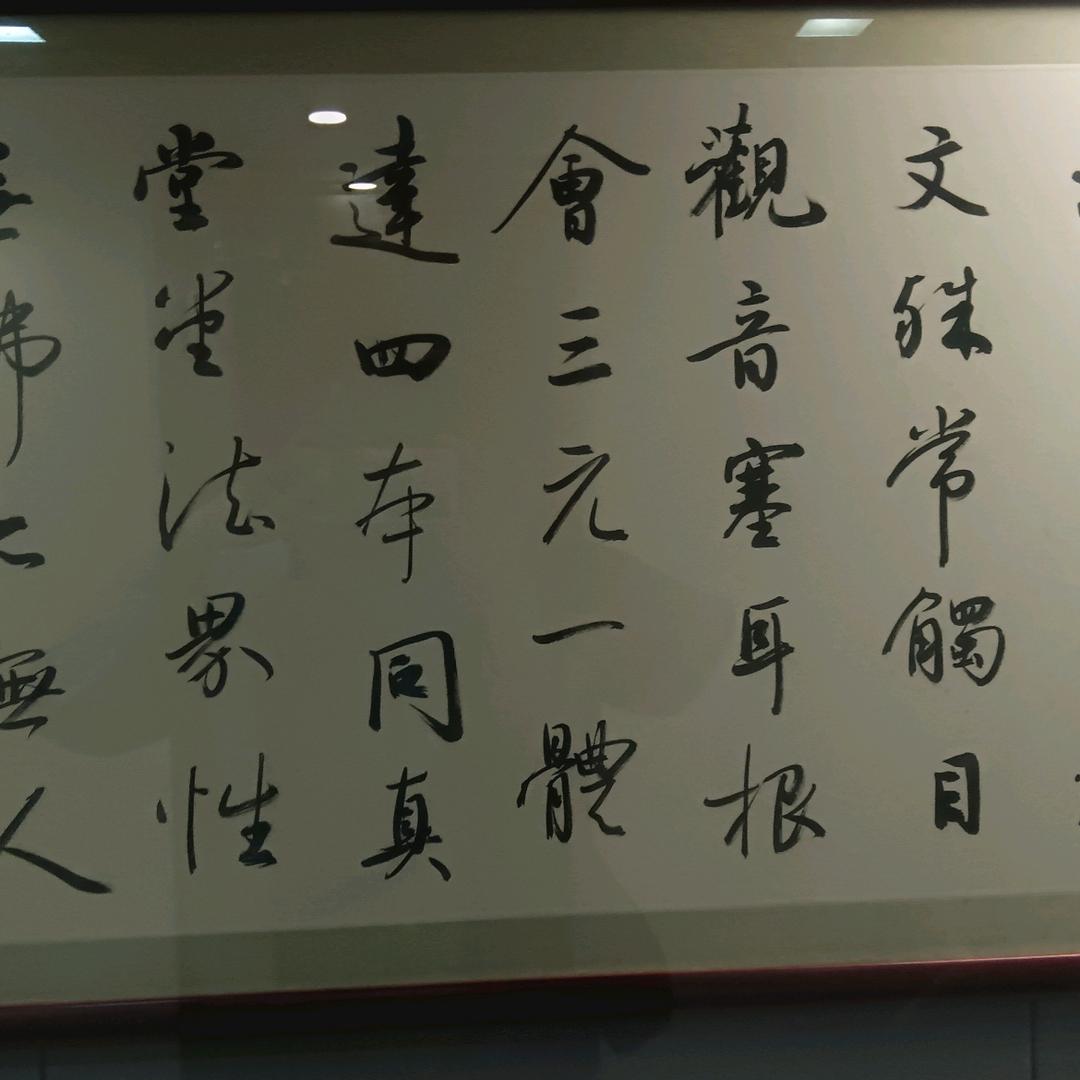 文殊常觸目
觀音塞耳根
會三元一體
達四本同真
堂堂法界性
無佛亦無人